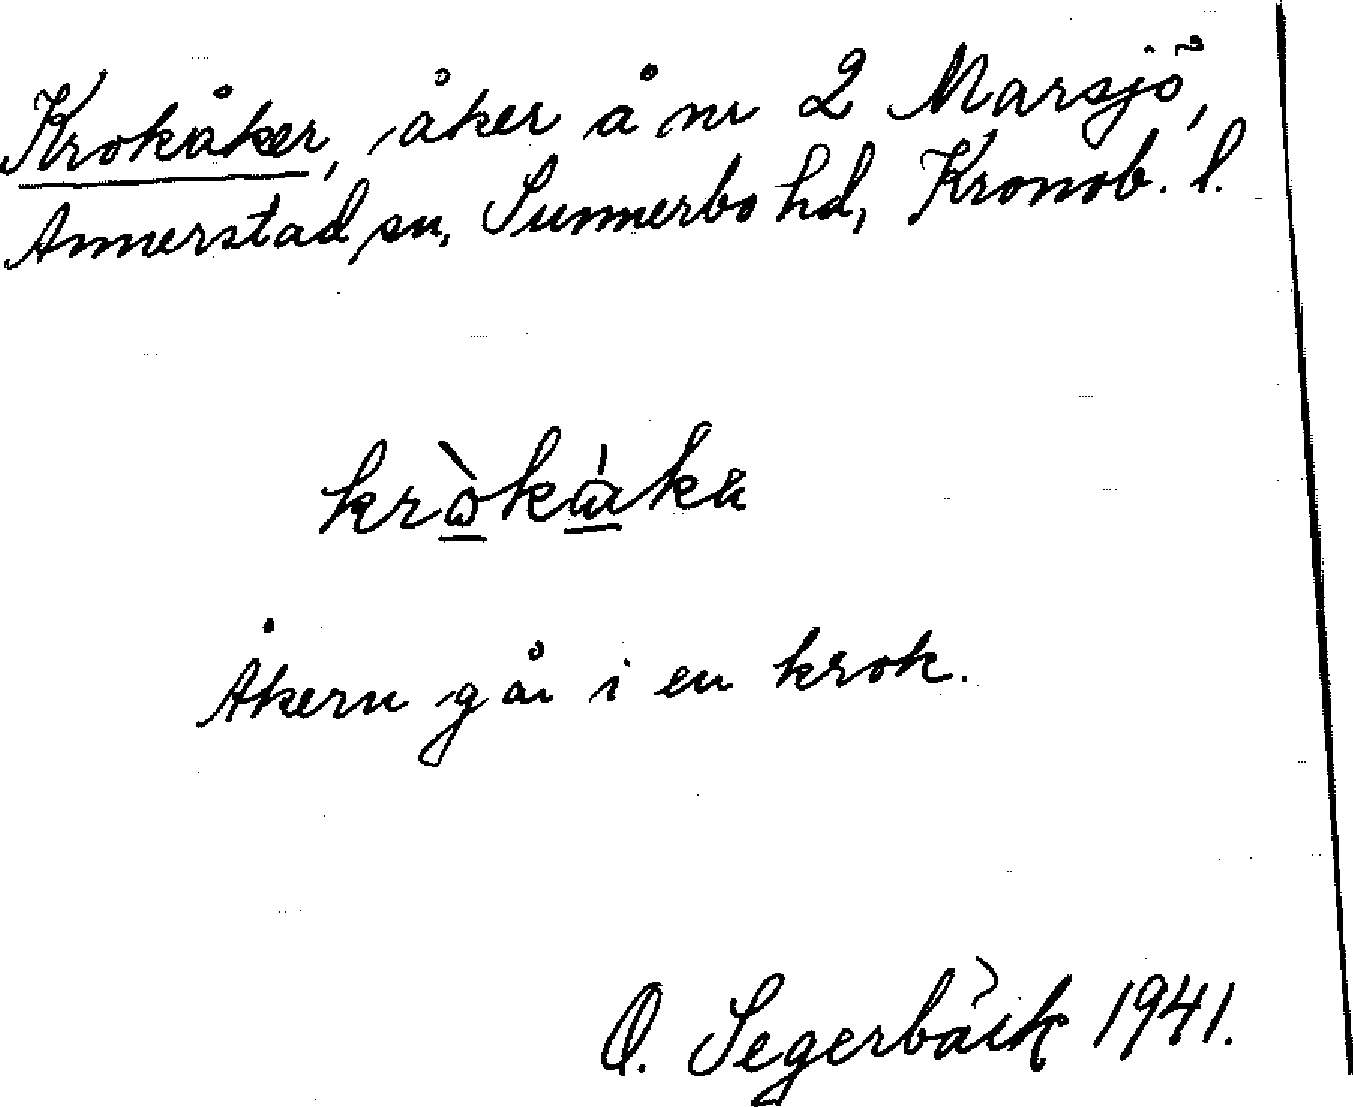 Krokåker, åker å nr 2 Marsjö,
Annerstad sn, Sunnerbo hd, Kronob. l.
Åkern går i en krok.
O. Segerbäck 1941.